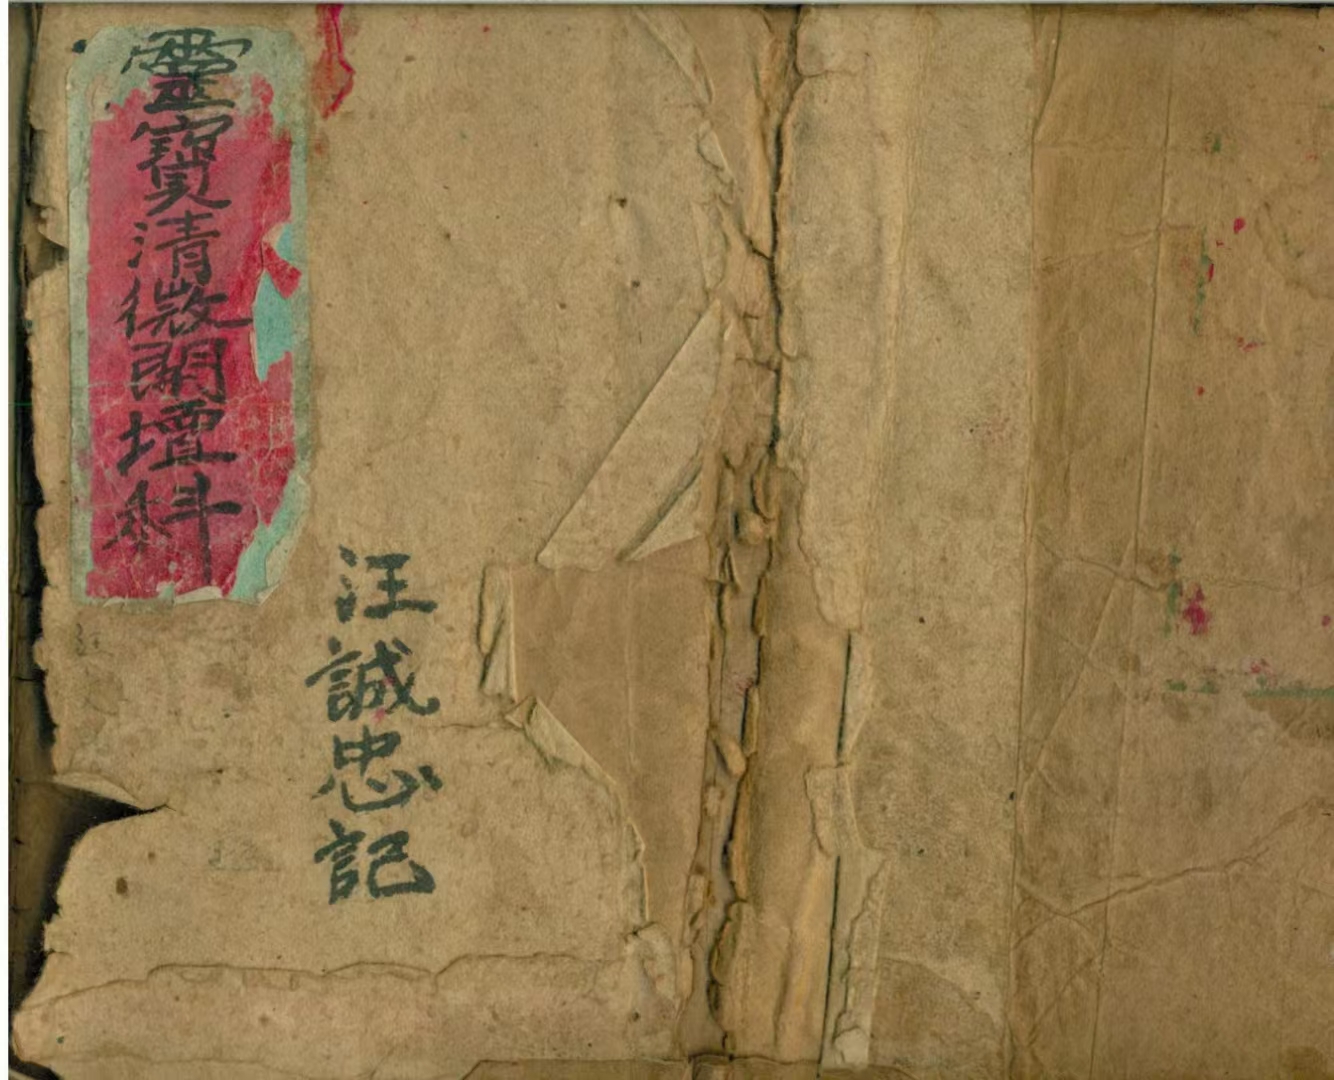 靈寶清微開壇科
汪誠忠記